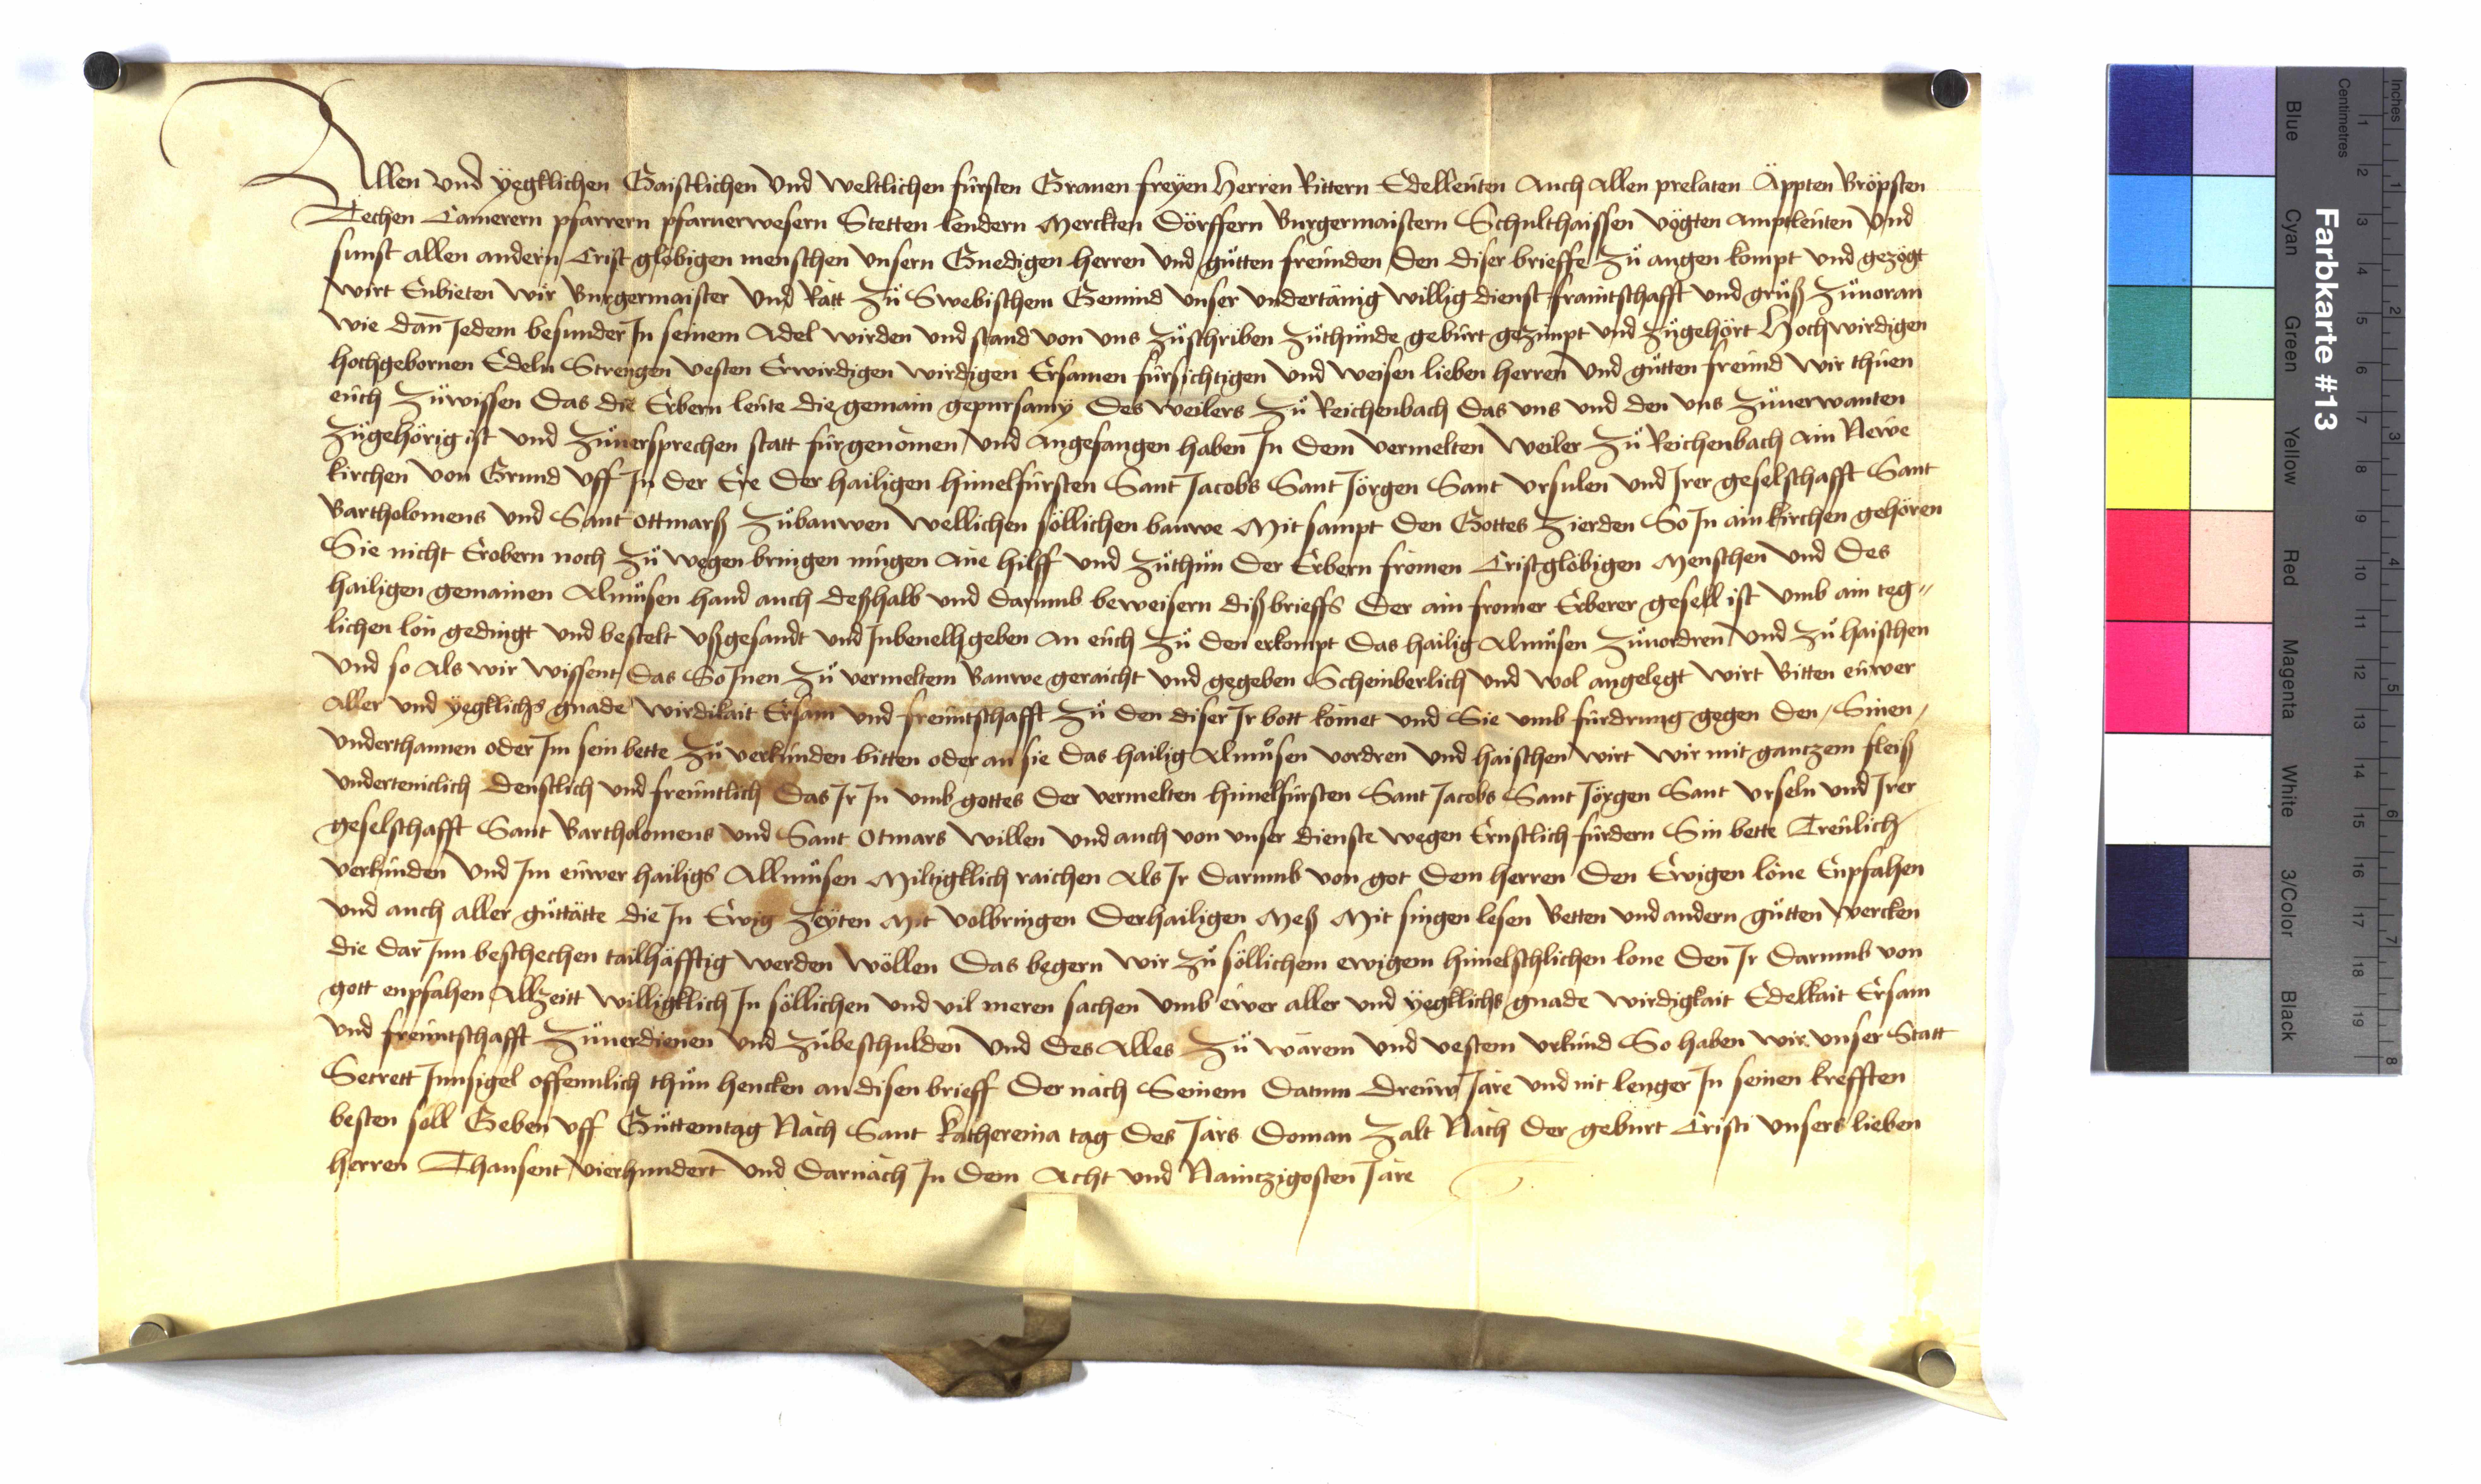 Allen vnd yegklichen Gaistlichen vnd weltlichen fürsten Grauen freyen Herren Rittern Edelleüten Auch allen prelaten Äppten Bröpsten
Techen Camerern pfarrern pfaruerwesern Stetten lendern Merckten Dörffern Burgermaistern Schulthaissen vögten amptleüten vnd
sunst allen andern Crist glöbigen menschen vnsern Gnedigen herren vnd gůtten freünden den diser brieffe Zů augen kompt vnd gezögt
wirt Enbieten wir Burgermaister vnd Rätt Zů Swebischem Gemünd vnser vndertänig willig dienst fraintschafft vnd grůß Zůuoran
wie dan̄ Jedem besunder Jn seinem Adel wirden vnd stand von vns Zůschriben Zůthůnde gebürt gezimpt vnd Zůgehört Hochwirdigen
hochgebornen Edeln Strengen vesten Erwirdigen wirdigen Ersamen fürsichtigen vnd weisen lieben herren vnd gůtten freünd wir thüen
eüch Zůwissen Das die Erbern leüte die gemain gepursamy des weilers Zů Reichenbach das vns vnd den vns Zůuerwanten
Zůgehörig ist vnd Zůuersprechen statt fürgenomen vnd angefangen haben Jn dem vermelten Weiler Zů Reichenbach ain Newe
kirchen von Grund vff Jn der Ere der hailigen himelfürsten Sant Jacobs Sant Jörgen Sant vrsulen vnd Jrer geselschafft Sant
Bartholomeus vnd Sant ottmarß Zůbauwen wellichen söllichen bauwe Mit sampt den Gottes Zierden So Jn ain kirchen gehören
Sie nicht Erobern noch Zů wegen bringen mügen Ane hilff vnd Zůthůn der Erbern fromen Cristglöbigen Menschen vnd des
hailigen gemainen Almůsen hand auch deßhalb vnd darumb beweisern diß brieffs der ain fromer Erberer gesell ist vmb ain teg⸗
lichen lon gedingt vnd bestelt vßgesandt vnd Jnbeuelh geben an eüch Zů den erkompt das hailig Almůsen Zůuordren vnd Zů haischen
vnd so Als wir wissent das So Jnen Zů vermeltem Bauwe geraicht vnd gegeben Scheinberlich vnd wol angelegt wirt Bitten eüwer
aller vnd yegklichs gnäde wirdikait Ersam vnd freüntschafft Zů den diser Jr bott komet vnd Sie vmb fürdrung gegen den Sinen
vnderthannen oder Jm sein bette Zů verkünden bitten oder an sie das hailig Almůsen vordren vnd haischen wirt wir mit gantzem fleiß
vnderteniclich denstlich vnd freüntlich das Jr Jn vmb gottes der vermelten himelfürsten Sant Jacobs Sant Jörgen Sant vrseln vnd Jrer
geselschafft Sant Bartholomeus vnd Sant Otmars willen vnd auch von vnser dienste wegen Ernstlich fürdern Sin bette Treülich
verkünden vnd Jm eüwer hailigs Allmůsen Miltigklich raichen Als Jr darumb von got dem herren den Ewigen löne Enpfahen
vnd auch aller gůttätte die Jn Ewig Zeyten Mit volbringen derhailigen Meß Mit singen lesen Betten vnd andern gůtten wercken
die dar Jnn beschechen tailhäfftig werden wöllen Das begern wir Zů söllichem ewigem himelschlichen lone den Jr darumb von
gott enpfahen Allzeitt williglich Jn söllichen vnd vil meren sachen vmb ewer aller vnd yegklichs gnade wirdigkait Edelkait Ersam
vnd freüntschafft Zůuerdienen vnd Zůbeschulden vnd des Alles Zů warem vnd vestem vrkünd So haben wir vnser Statt
Secrett Jnnsigel offennlich thůn hencken an disen brieff der nach Seinem Datum dreüw Jare vnd nit lenger Jn seinen krefften
besten soll Geben vff Gůttemtag Näch Sant Kathereina tag des Jars Doman Zalt Näch der gebürt Cristi vnsers lieben
herren Thausent vierhundert vnd darnäch Jn dem Acht vnd Naintzigosten Jare
Farbkarte #13
Blue Cyan Green Yellow Red Magenta White 3/Color Black
Centimetres 1 2 3 4 5 6 7 8 9 10 11 12 13 14 15 16 17 18 19
Inches 1 2 3 4 5 6 7 8